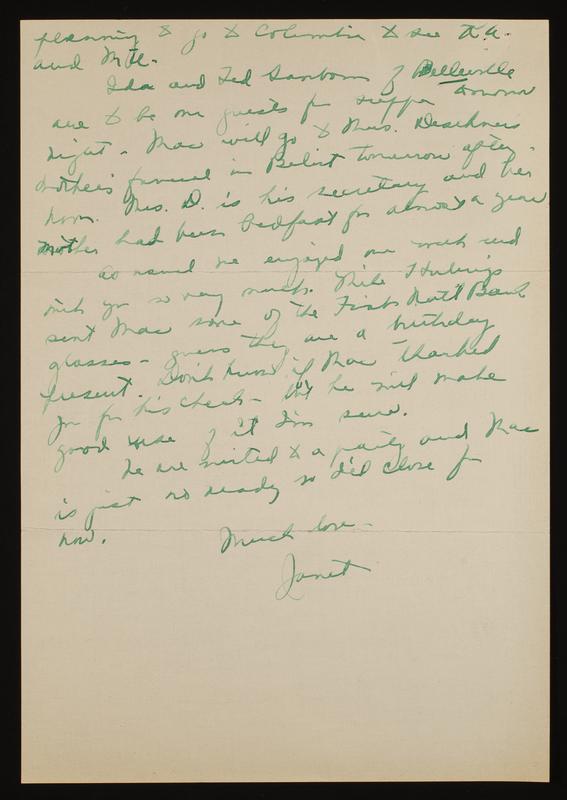 planning to go to Columbia to see K.A.
and M.H.
Ida and Ted Sanborn of Belleville
are to be our guests for supper tomorrow
night - Mac will go to Mrs. Deschner's
mother's funeral in Beloit tomorrow after-
noon. Mrs. D. is his secretary and her
mother had been bedfast for almost a year
As usual we enjoyed our week end
with you so very much. Mike Hulings
sent Mac some of the First Natl Bank
glasses - guess they are a birthday
present. Don't know if Mac thanked
you for his check - but he will make
good use of it I'm sure.
We are invited to a party and Mac
is just ready so I'll close for
now.
Much love -
Janet